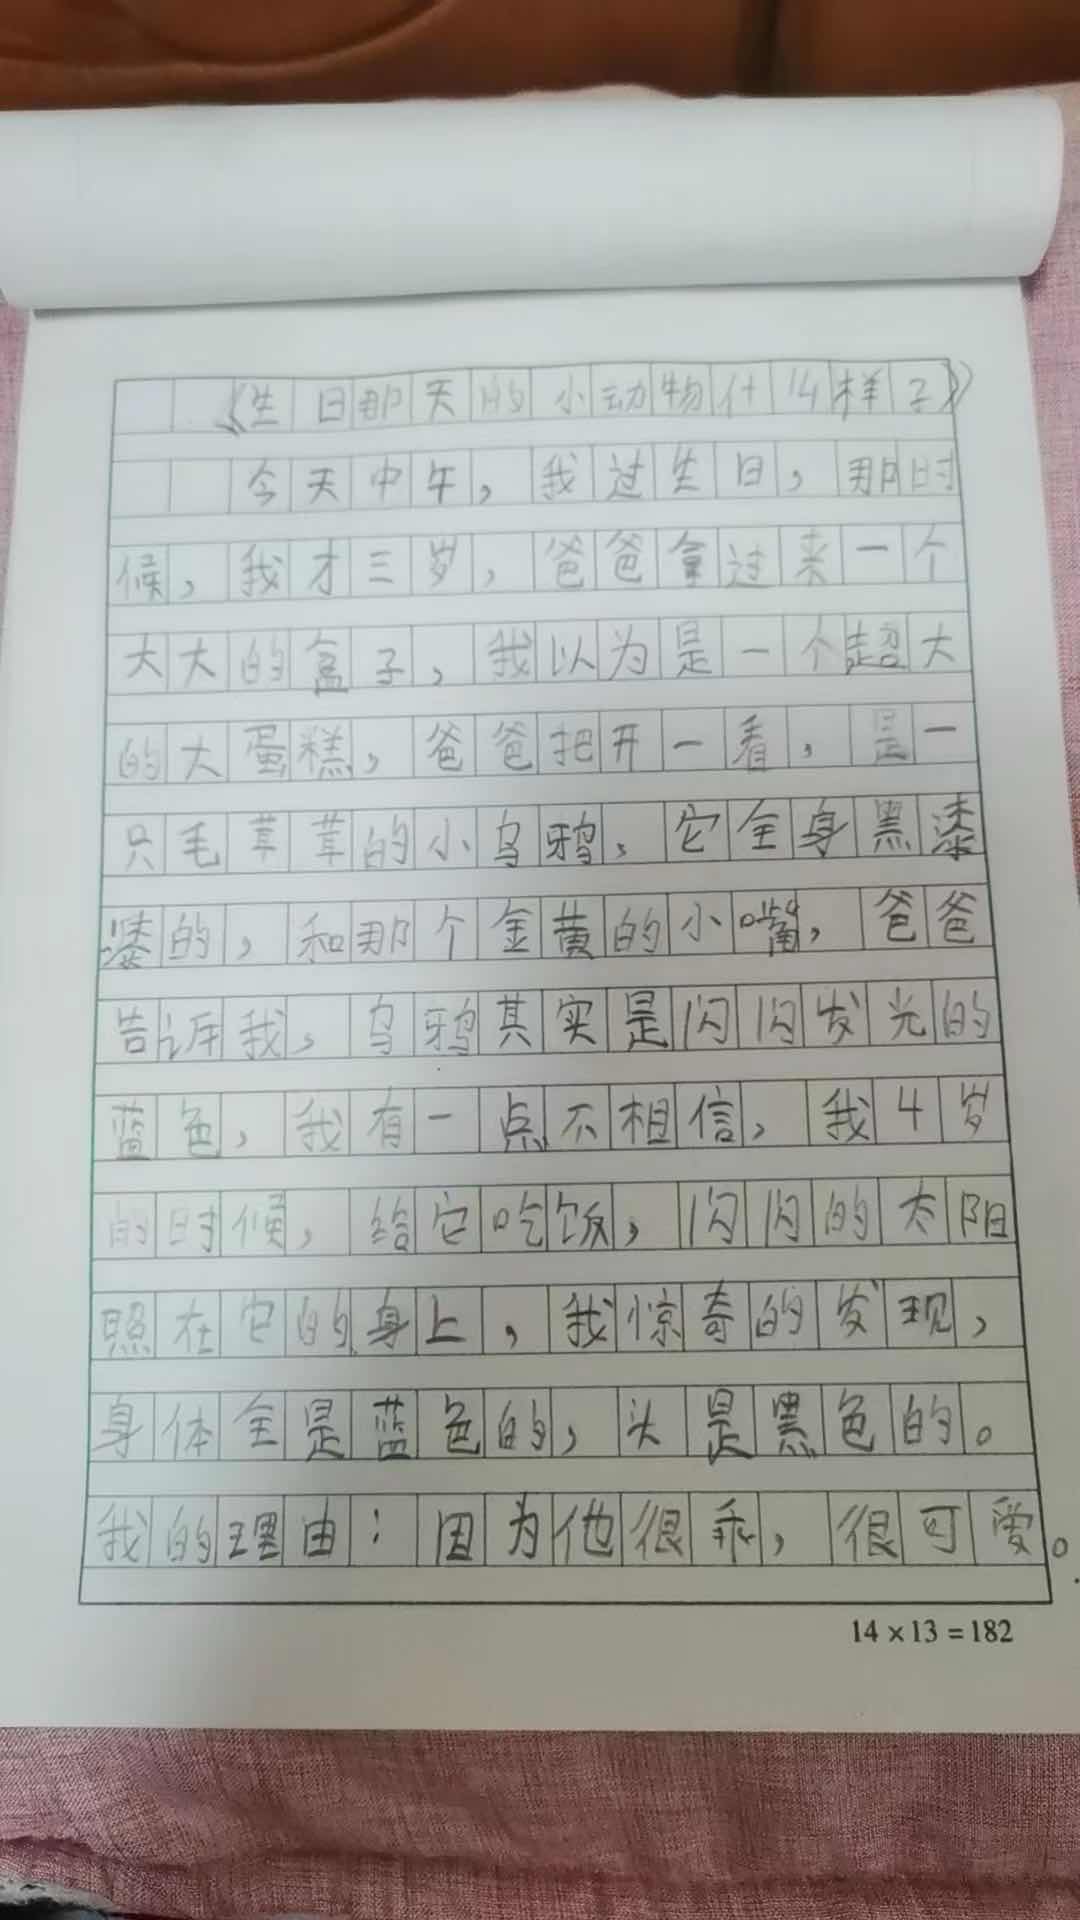 《生日那天的小动物什么样子》
今天中午，我过生日，那时
候，我才三岁，爸爸拿过来一个
大大的盒子，我以为是一个超大
的大蛋糕，爸爸把开一看，是一
只毛草草的小乌鸦，它全身黑漆
漆的，和那个金黄的小嘴，爸爸
告诉我，乌鸦其实是闪闪发光的
蓝色，我有一点不相信，我4岁
的时候，给它吃饭，闪闪的太阳
照在它的身上，我惊奇的发现，
身体全是蓝色的，头是黑色的。
我的理由：因为他很乖，很可爱。
14×13=182